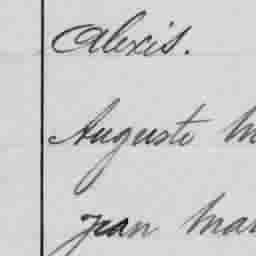 Alexis.
Auguste
Jean